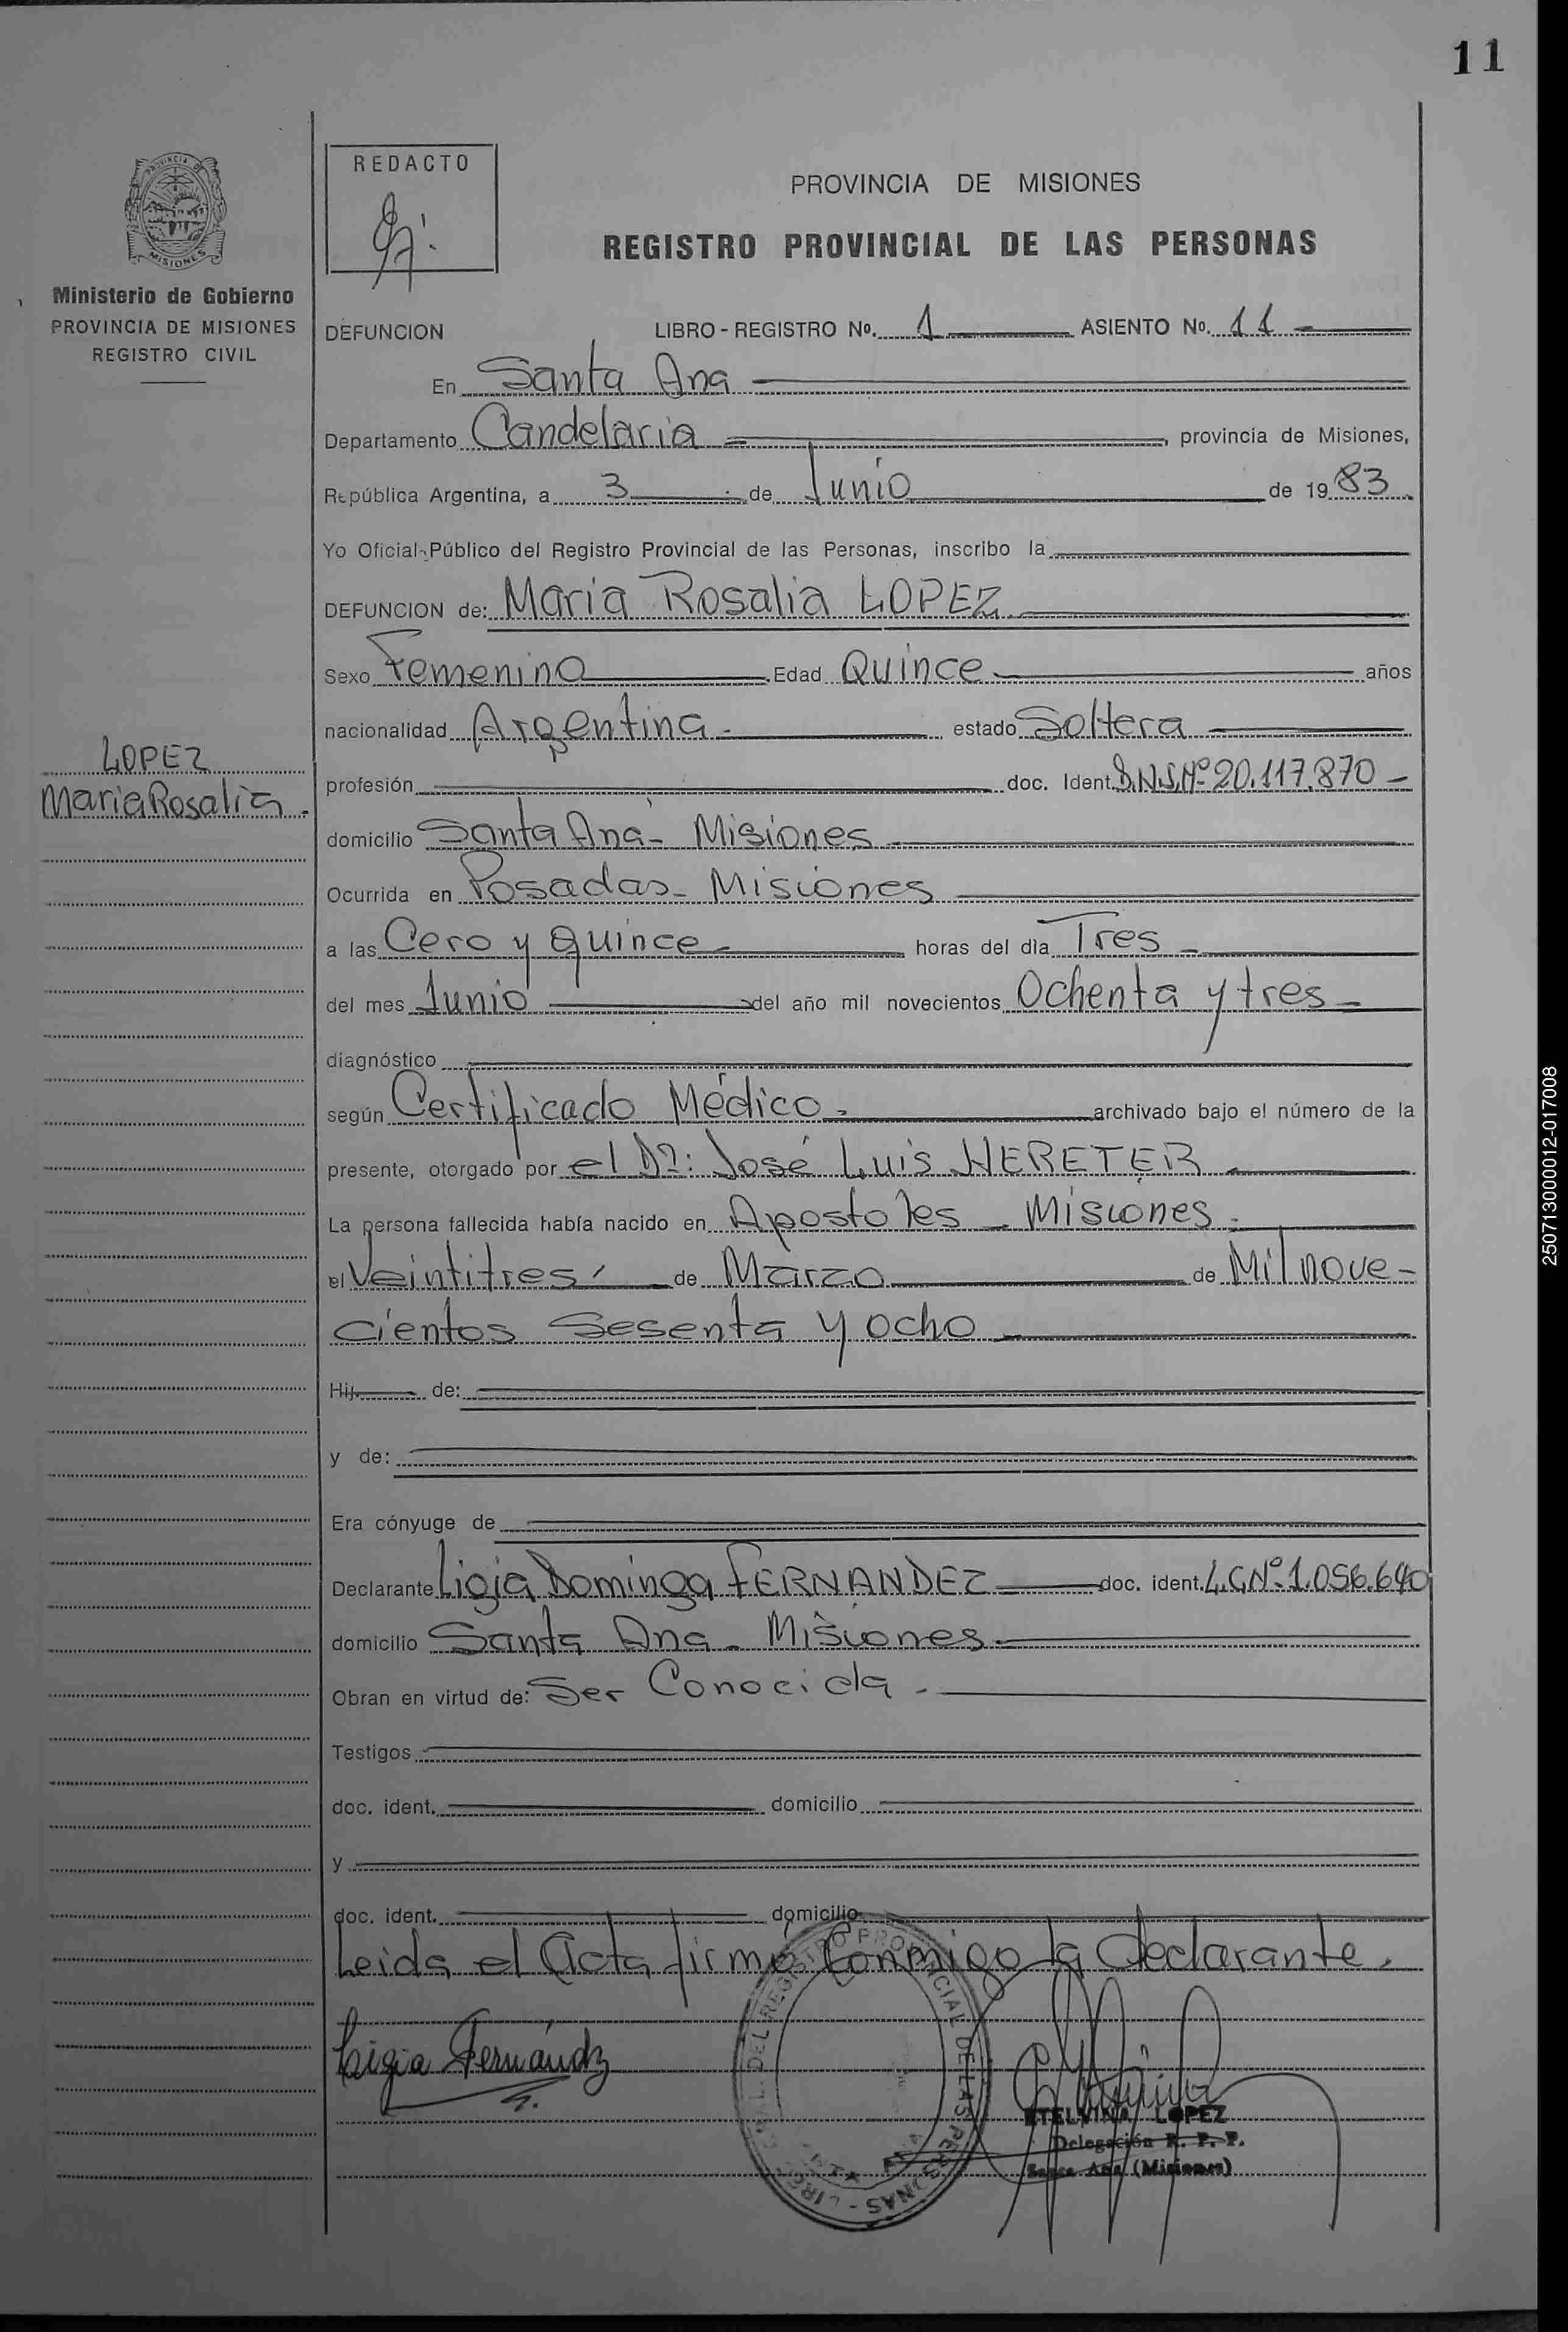 11
REDACTO
PROVINCIA DE MISIONES
REGISTRO PROVINCIAL DE LAS PERSONAS
PROVINCIA DE
MISIONES
Ministerio de Gobierno
PROVINCIA DE MISIONES
REGISTRO CIVIL
DEFUNCION LIBRO - REGISTRO No. 1 ASIENTO No. 11
En Santa Ana
Departamento Candelaria, provincia de Misiones,
República Argentina, a 3 de Junio de 1983
Yo Oficial Público del Registro Provincial de las Personas, inscribo la
DEFUNCION de: Maria Rosalia LOPEZ
Sexo Femenino Edad Quince años
nacionalidad Argentina estado Soltera
LOPEZ
Maria Rosalia.
profesión doc. Ident. D.N.I.Nº 20.117.870
domicilio Santa Ana - Misiones
Ocurrida en Posadas - Misiones
a las Cero y Quince horas del día Tres
del mes Junio del año mil novecientos Ochenta y tres
diagnóstico
según Certificado Médico archivado bajo el número de la
presente, otorgado por el Dr: José Luis HERETER
La persona fallecida había nacido en Apostoles - Misiones
el Veintitres de Marzo de Mil nove-
cientos Sesenta y ocho
Hij de:
y de:
Era cónyuge de
Declarante Ligia Dominga FERNANDEZ doc. ident. L.C.Nº 1.056.640
domicilio Santa Ana - Misiones
Obran en virtud de: Ser Conocida.
Testigos
doc. ident. domicilio
y
doc. ident. domicilio
Leida el Acta firmó Conmigo la declarante.
DEL REGISTRO PROVINCIAL DE LAS PERSONAS
Ligia Fernández
ETELVINA LOPEZ
Delegación R. P. P.
Santa Ana (Misiones)
250713000012-017008